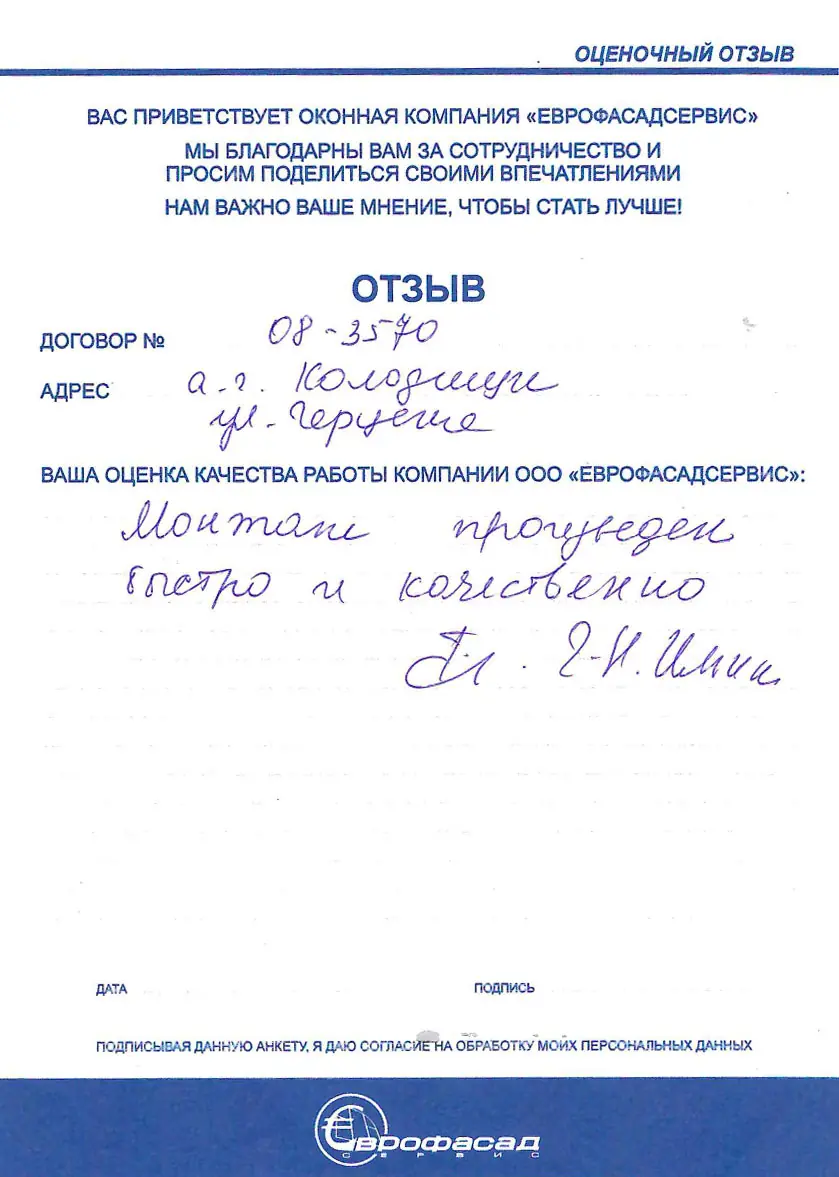 ОЦЕНОЧНЫЙ ОТЗЫВ
ВАС ПРИВЕТСТВУЕТ ОКОННАЯ КОМПАНИЯ «ЕВРОФАСАДСЕРВИС»
МЫ БЛАГОДАРНЫ ВАМ ЗА СОТРУДНИЧЕСТВО И
ПРОСИМ ПОДЕЛИТЬСЯ СВОИМИ ВПЕЧАТЛЕНИЯМИ
НАМ ВАЖНО ВАШЕ МНЕНИЕ, ЧТОБЫ СТАТЬ ЛУЧШЕ!
ОТЗЫВ
ДОГОВОР № 08-3570
АДРЕС а.г. Колодищи
ул. Герцена
ВАША ОЦЕНКА КАЧЕСТВА РАБОТЫ КОМПАНИИ ООО «ЕВРОФАСАДСЕРВИС»:
Монтаж произведен
быстро и качественно
ДАТА ПОДПИСЬ
ПОДПИСЫВАЯ ДАННУЮ АНКЕТУ, Я ДАЮ СОГЛАСИЕ НА ОБРАБОТКУ МОИХ ПЕРСОНАЛЬНЫХ ДАННЫХ
Еврофасад
СЕРВИС